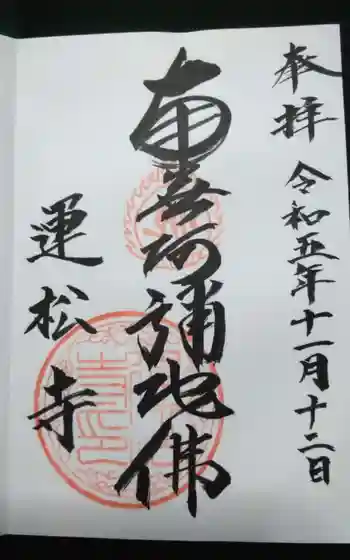 奉拝
令和五年十一月十二日
南無阿彌陀佛
運松寺